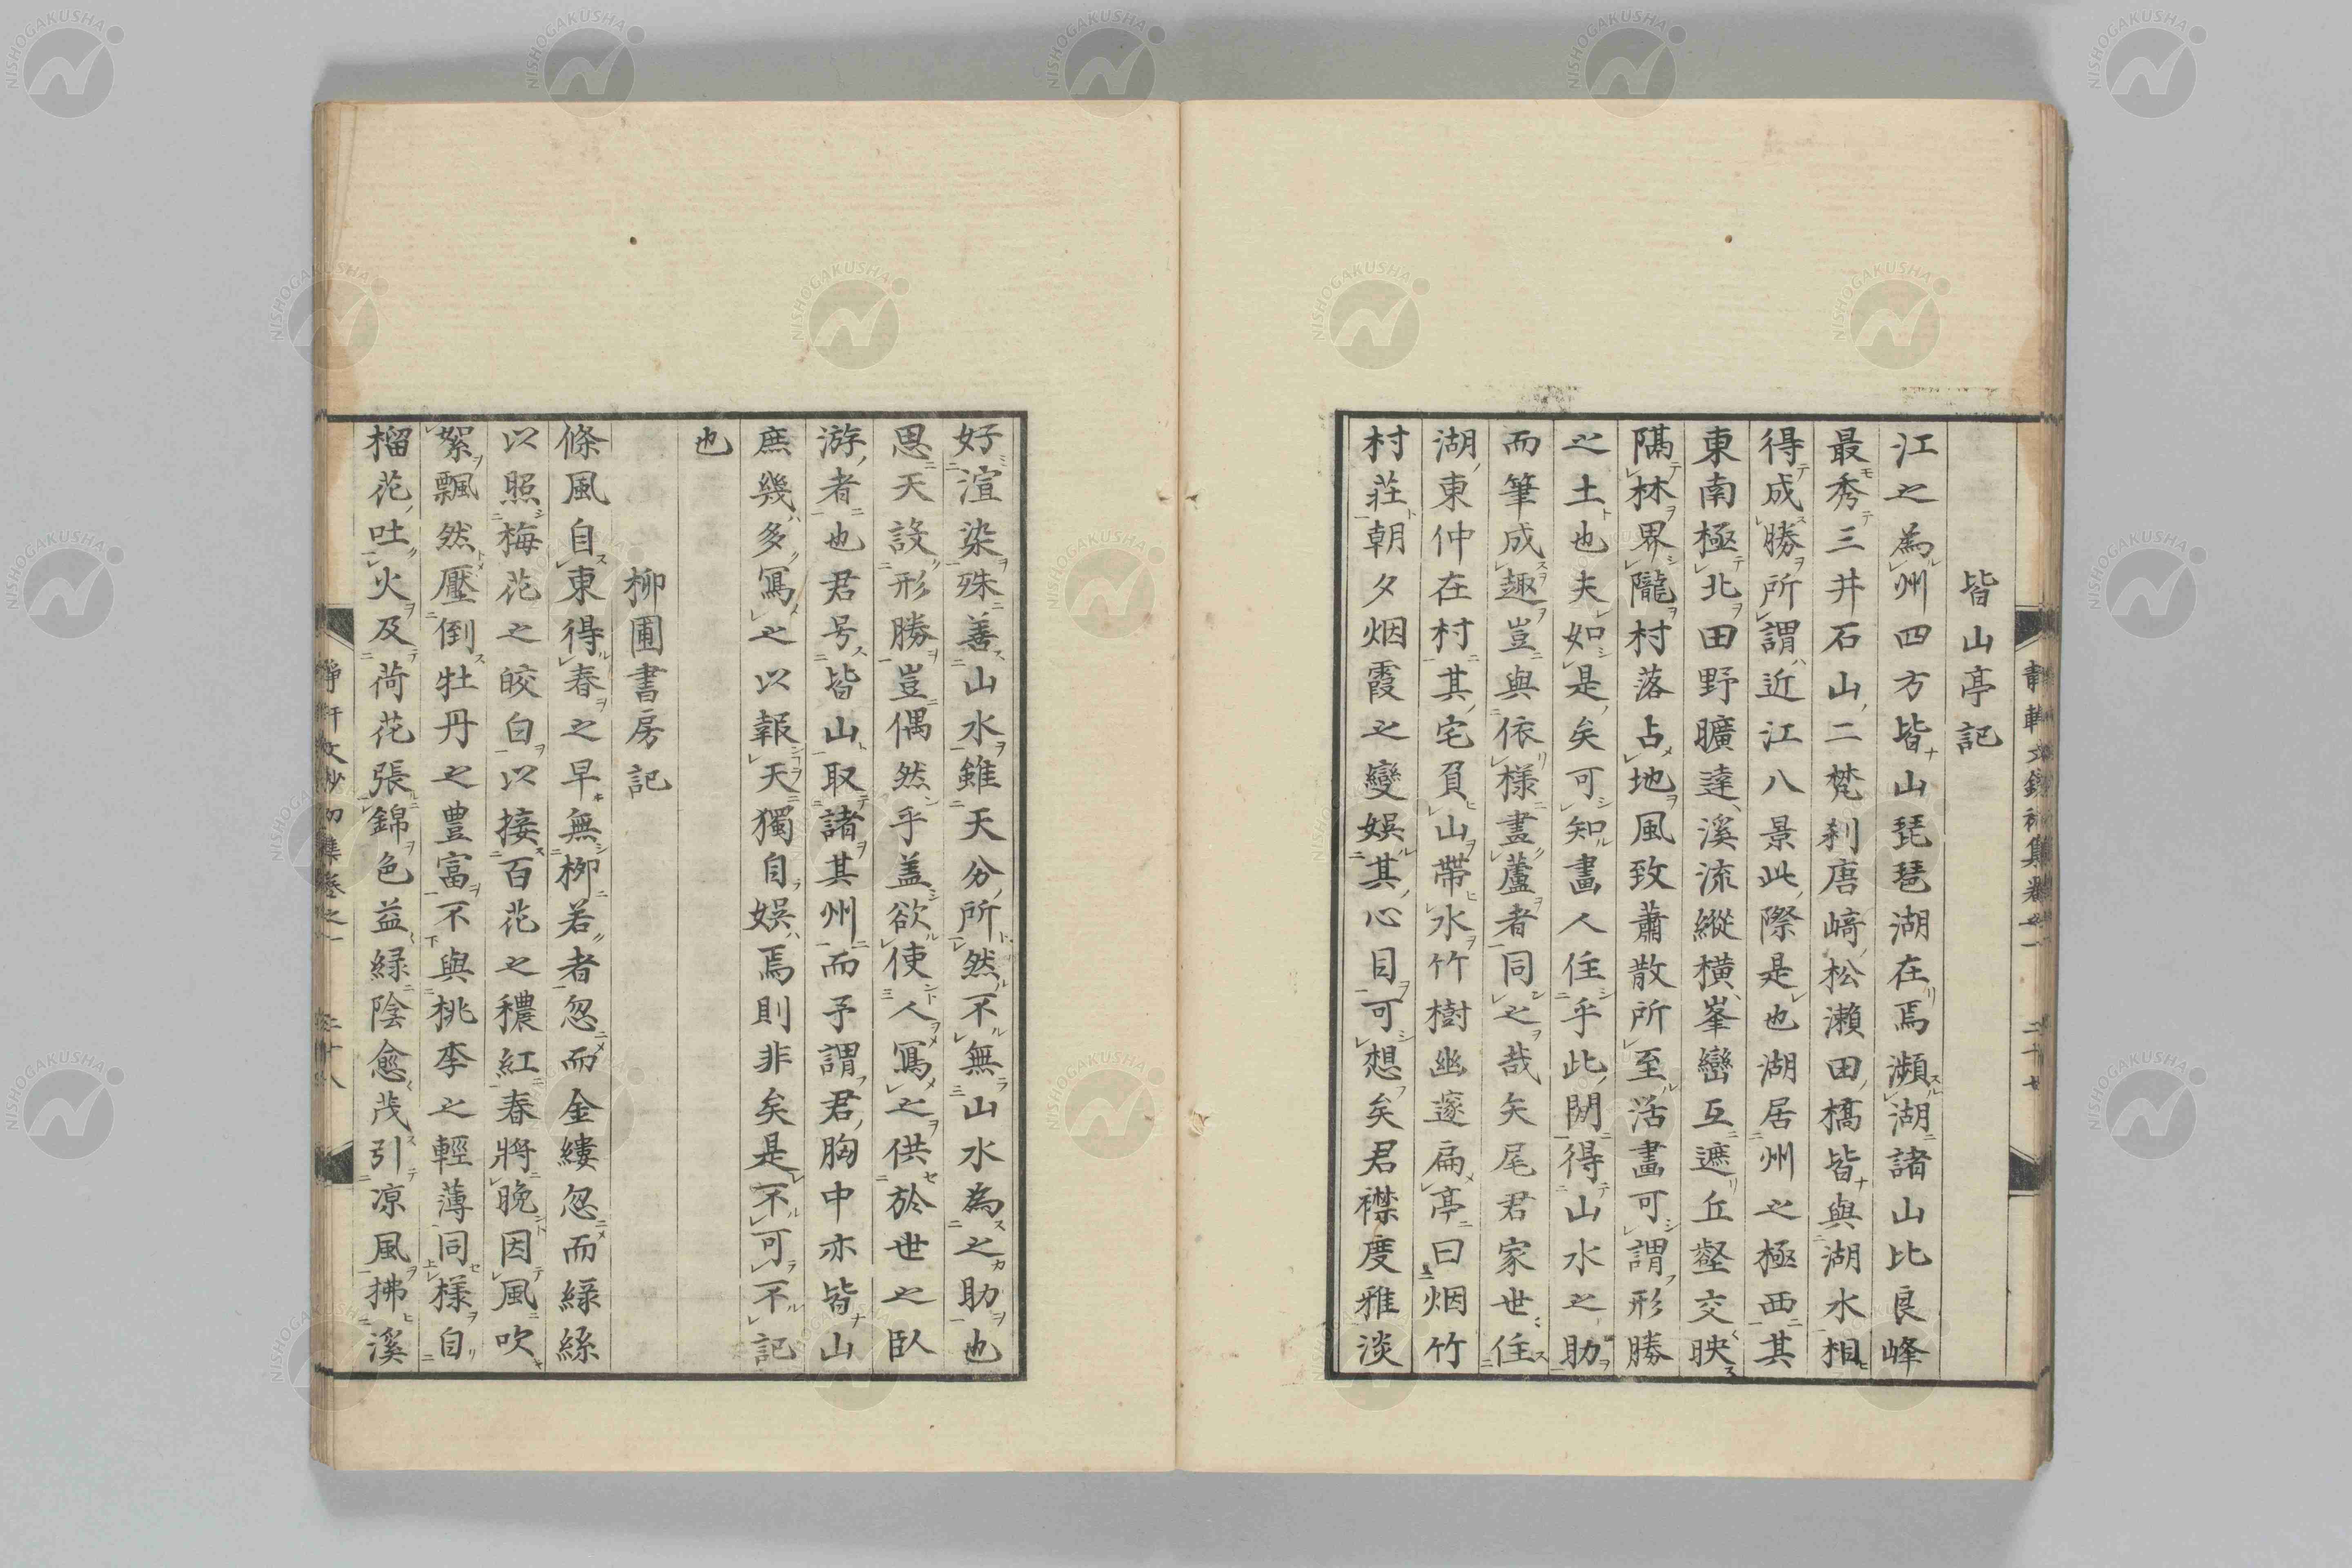 皆山亭記
江之為州四方皆山琵琶湖在焉瀕湖諸山比良峰
最秀三井石山二梵刹唐﨑松瀬田橋皆與湖水相
得成勝所謂近江八景此際是也湖居州之極西其
東南極北田野曠逹溪流縱橫峯巒互遮丘壑交映
隔林界隴村落占地風致蕭散所至活畫可謂形勝
之土也夫如是矣可知畫人住乎此閒得山水之助
而筆成趣豈與依様畫蘆者同之哉矢尾君家世住
湖東仲在村其宅負山帶水竹樹幽邃扁亭曰烟竹
村莊朝夕烟霞之變娯其心目可想矣君襟度雅淡
好渲染殊善山水雖天分所然不無山水為之助也
思天設形勝豈偶然乎盖欲使人寫之供於世之臥
游者也君号皆山取諸其州而予謂君胸中亦皆山
庶幾多寫之以報天獨自娯焉則非矣是不可不記
也
柳圃書房記
條風自東得春之早無柳若者忽而金縷忽而緑絲
以照梅花之皎白以接百花之穠紅春將晩因風吹
絮飄然壓倒牡丹之豊富不與桃李之輕薄同様自
榴花吐火及荷花張錦色益緑陰愈茂引凉風拂溪
NISHOGAKUSHA